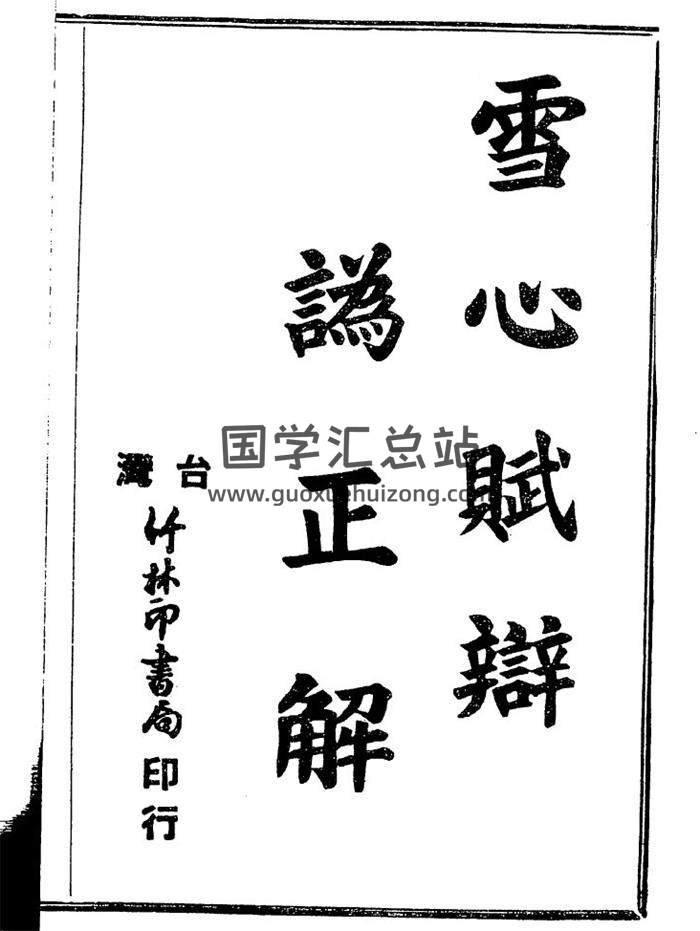 雪心賦辯
譌正解
台灣
竹林印書局印行
国学汇总站
www.guoxuehuizong.com